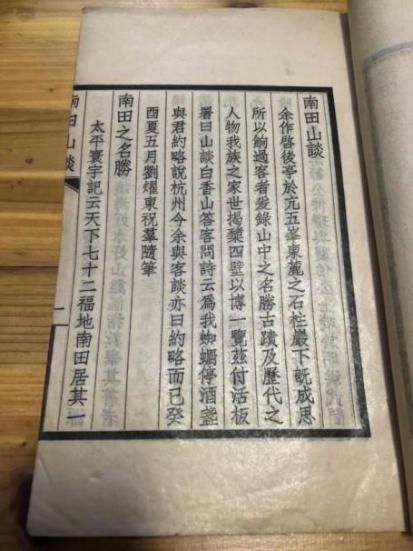 南田山談
余作啓後亭於亢五峯東麓之石柱巖下既成思
所以餉過客者爰錄山中之名勝古蹟及歷代之
人物我族之家世揭櫫四壁以博一覽茲付活板
署曰山談白香山答客問詩云爲我踟躕停酒盞
與君約略說杭州今余與客談亦曰約略而已癸
酉夏五月劉耀東祝羣隨筆
南田之名勝
太平寰宇記云天下七十二福地南田居其一
南田山談
一